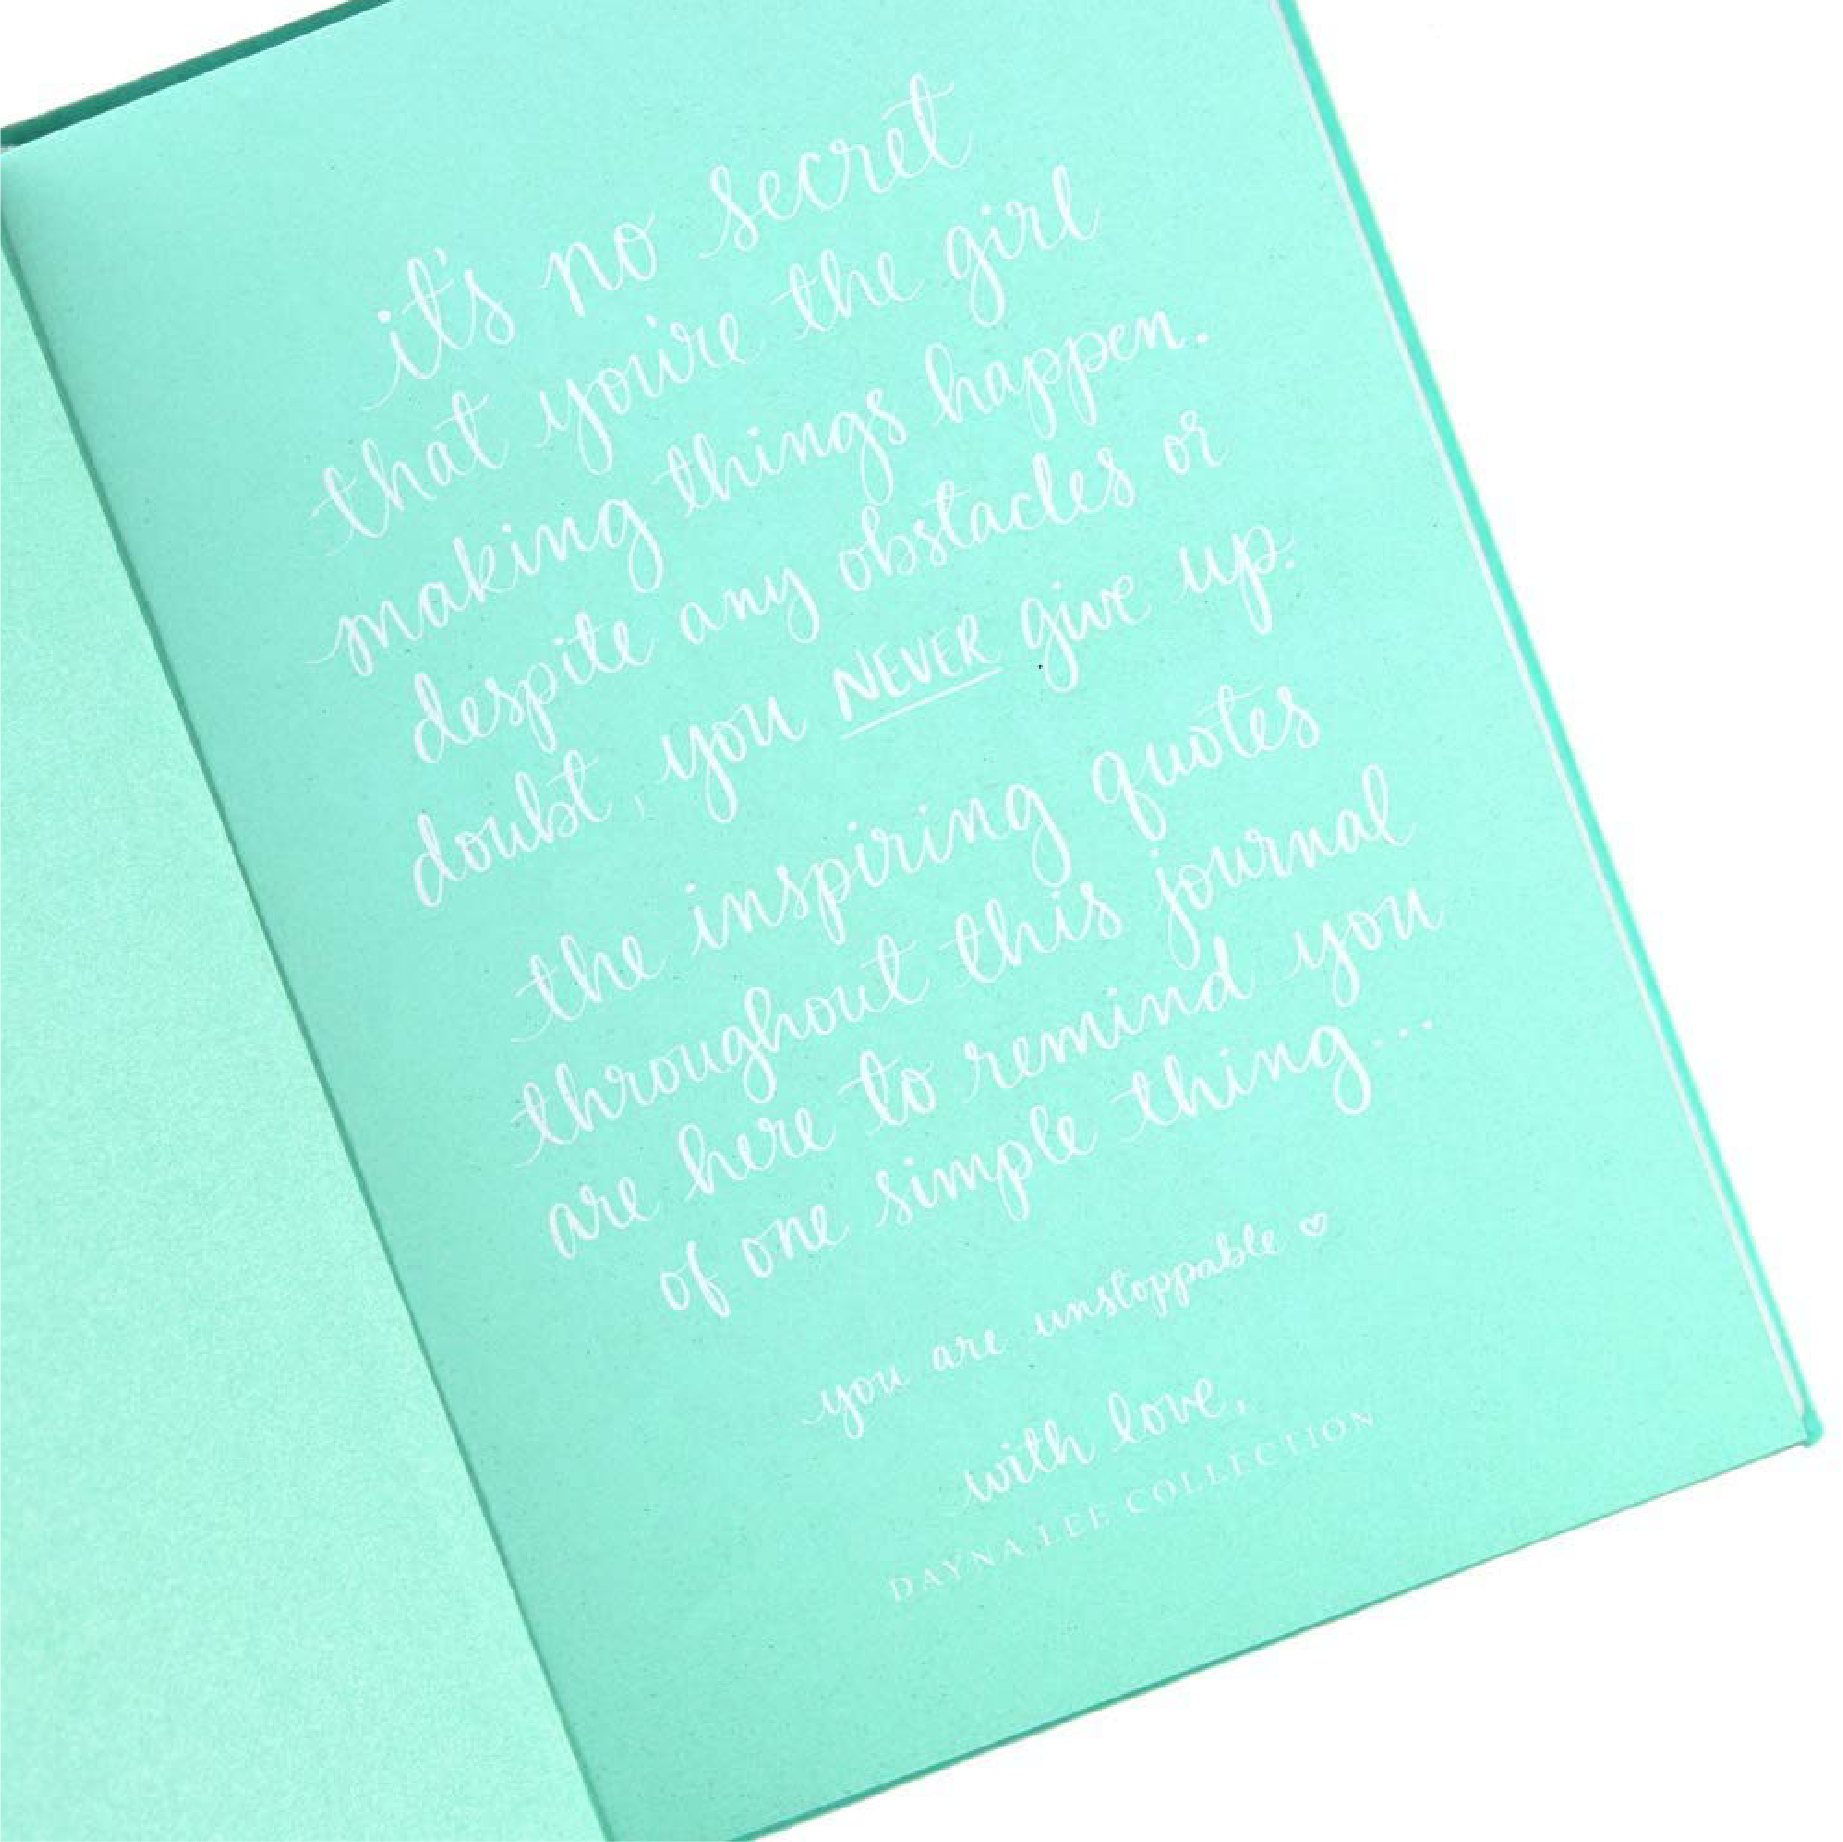 it's no secret
that you're the girl
making things happen.
despite any obstacles or
doubt, you NEVER give up.
the inspiring quotes
throughout this journal
are here to remind you
of one simple thing...
you are unstoppable ♡
with love,
DAYNA LEE COLLECTION